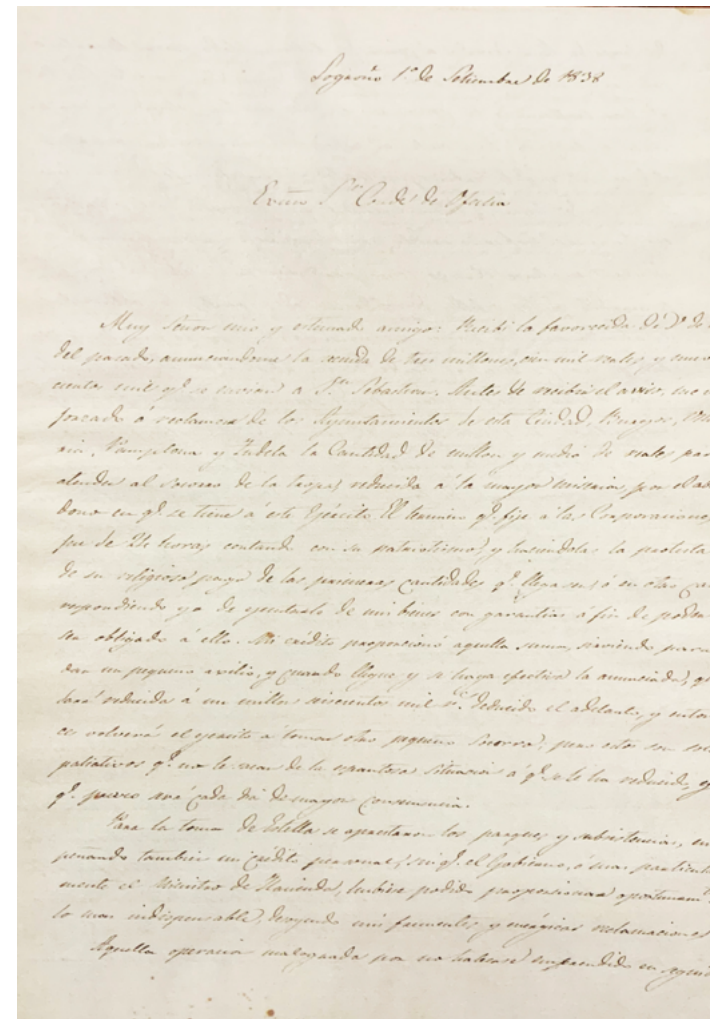 Logroño 1º de Setiembre de 1838
Excmo Sr Conde de Ofalia
Muy Señor mio y estimado amigo: Recibi la favorecida de V. de
del pasado, anunciandome la remesa de tres millones, cien mil reales, y nuve
cientos mil q.e se envian a S.n Sebastian. Antes de recibir el aviso, me
forzado á reclamar de los Ayuntamientos de esta Ciudad, Burgos,
Pamplona y Tudela la Cantidad de millon y medio de reales para
atender al socorro de la tropa, reducida á la mayor miseria por el
dono en q.e se tiene á este Ejército. El termino q.e fijé á las Corporaciones
fue de 24 horas contando con su patriotismo, y haciendoles la protesta
de su religioso pago de las primeras cantidades q.e llegasen, ó en otro ca
respondiendo yo de ejecutarlo de mis bienes con garantias á fin de poder
ser obligado á ello. Mi crédito proporcionó aquella suma, sirviendo para
dar un pequeño ausilio, y cuando llegue y se haga efectiva la anunciada, que
dará reducida á un millon seiscientos mil r.s deducido el adelanto, y enton
ces volverá el ejercito á tomar otro pequeño socorro; pero estos son solo
paliativos q.e no le sacan de la espantosa situacion á q.e se le ha reducido, y
q.e preveo será cada dia de mayor consecuencia.
Para la toma de Estella se aprontaron los parques y subsistencias, em
peñando tambien mi crédito personal, sin q.e el Gobierno, ó mas particular
mente el Ministro de Hacienda, hubiese podido proporcionar oportunam.te
lo mas indispensable, desoyendo mis frecuentes y enérgicas reclamaciones
Aquella operacion malograda por no haberse emprendido en